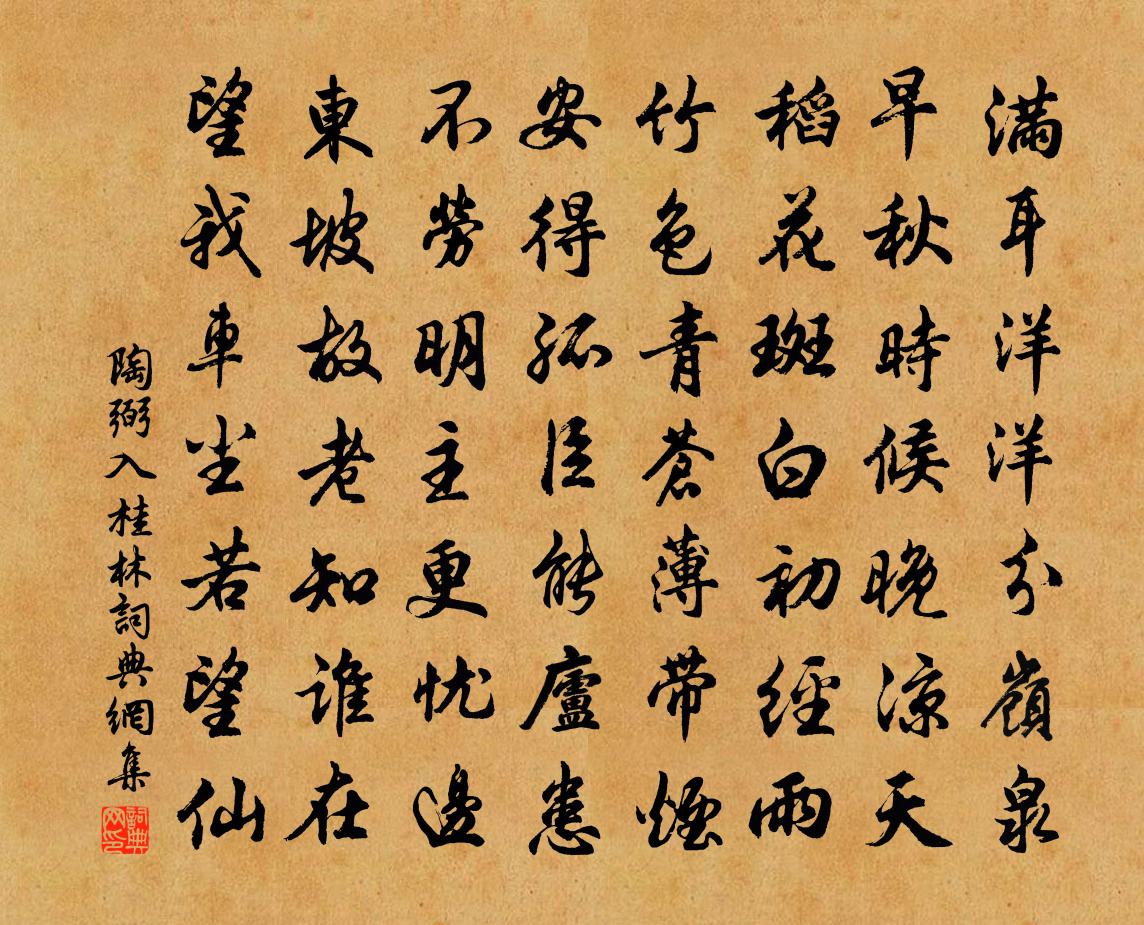 滿耳洋洋分嶺泉
早秋時候晚涼天
稻花斑白初經雨
竹色青蒼薄帶煙
安得孤臣能廬患
不勞明主更忧邊
東坡故老知誰在
望我車尘若望仙
陶弼入桂林詞典網集
詞典网印